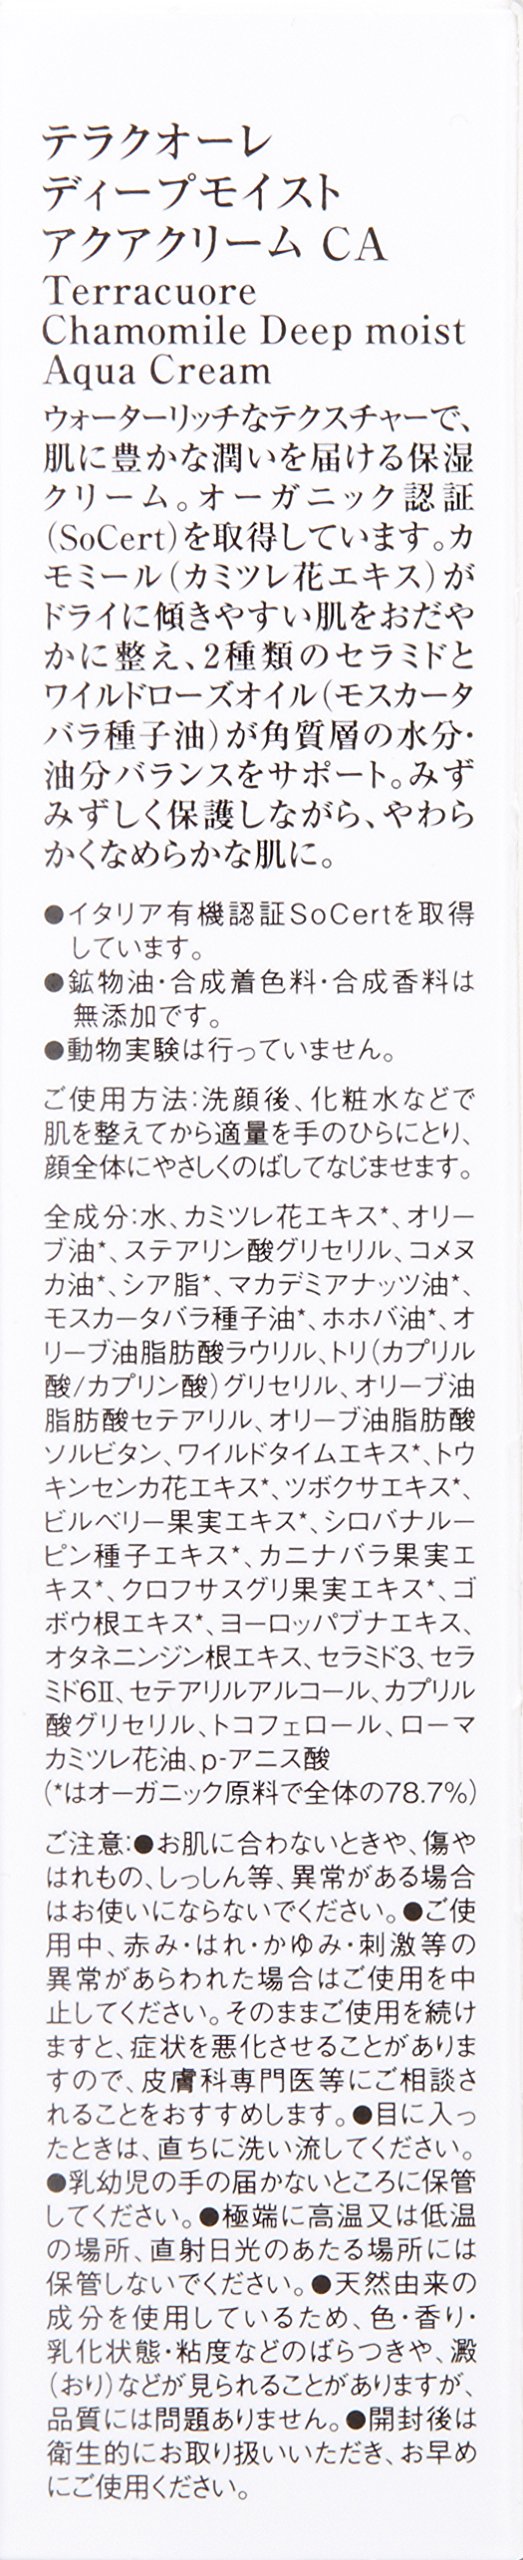 テラクオーレ
ディープモイスト
アクアクリーム CA
Terracuore
Chamomile Deep moist
Aqua Cream
ウォーターリッチなテクスチャーで、
肌に豊かな潤いを届ける保湿
クリーム。オーガニック認証
(SoCert)を取得しています。カ
モミール(カミツレ花エキス)が
ドライに傾きやすい肌をおだや
かに整え、2種類のセラミドと
ワイルドローズオイル(モスカータ
バラ種子油)が角質層の水分・
油分バランスをサポート。みず
みずしく保護しながら、やわら
かくなめらかな肌に。
●イタリア有機認証SoCertを取得
しています。
●鉱物油・合成着色料・合成香料は
無添加です。
●動物実験は行っていません。
ご使用方法:洗顔後、化粧水などで
肌を整えてから適量を手のひらにとり、
顔全体にやさしくのばしてなじませます。
全成分:水、カミツレ花エキス*、オリー
ブ油*、ステアリン酸グリセリル、コメヌ
カ油*、シア脂*、マカデミアナッツ油*、
モスカータバラ種子油*、ホホバ油*、オ
リーブ油脂肪酸ラウリル、トリ(カプリル
酸/カプリン酸)グリセリル、オリーブ油
脂肪酸セテアリル、オリーブ油脂肪酸
ソルビタン、ワイルドタイムエキス*、トウ
キンセンカ花エキス*、ツボクサエキス*、
ビルベリー果実エキス*、シロバナルー
ピン種子エキス*、カニナバラ果実エ
キス*、クロフサスグリ果実エキス*、ゴ
ボウ根エキス*、ヨーロッパブナエキス、
オタネニンジン根エキス、セラミド3、セラ
ミド6Ⅱ、セテアリルアルコール、カプリル
酸グリセリル、トコフェロール、ローマ
カミツレ花油、p-アニス酸
(*はオーガニック原料で全体の78.7%)
ご注意:●お肌に合わないときや、傷や
はれもの、しっしん等、異常がある場合
はお使いにならないでください。●ご使
用中、赤み・はれ・かゆみ・刺激等の
異常があらわれた場合はご使用を中
止してください。そのままご使用を続け
ますと、症状を悪化させることがありま
すので、皮膚科専門医等にご相談さ
れることをおすすめします。●目に入っ
たときは、直ちに洗い流してください。
●乳幼児の手の届かないところに保管
してください。●極端に高温又は低温
の場所、直射日光のあたる場所には
保管しないでください。●天然由来の
成分を使用しているため、色・香り・
乳化状態・粘度などのばらつきや、澱
(おり)などが見られることがありますが、
品質には問題ありません。●開封後は
衛生的にお取り扱いいただき、お早め
にご使用ください。